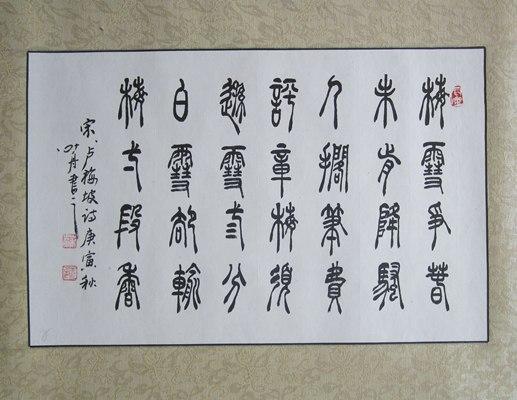 梅雪爭春
未肯降騷
人擱筆費
評章梅須
遜雪弎分
白雪卻輸
梅弌段香
宋卢梅坡诗庚寅秋
丹書